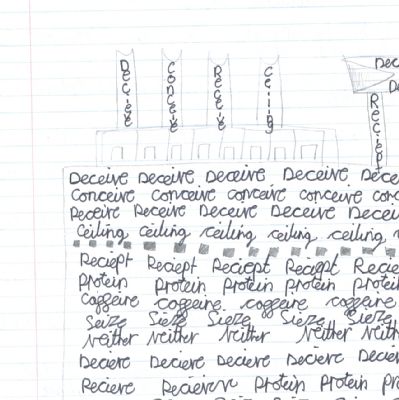 Conceive
Ceiling
Reciept
Deceive Deceive Deceive Deceive Dece
Conceive conceive conceive conceive con
Receive Receive Receive Receive Recei
Ceiling ceiling ceiling ceiling ceiling
Reciept Reciept Reciept Reciept Recie
Protein Protein Protein Protein Protein
Caffeine caffeine caffeine caffeine
Seize Sieze Sieze Sieze Sieze
Neither Neither Neither Neither Neith
Decieve Decieve Decieve Decieve Decieve
Recieve Protein Protein Pro